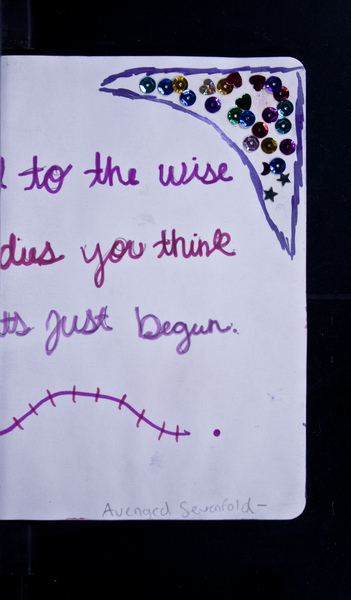 to the wise
dies you think
ts just begun.
Avenged Sevenfold-